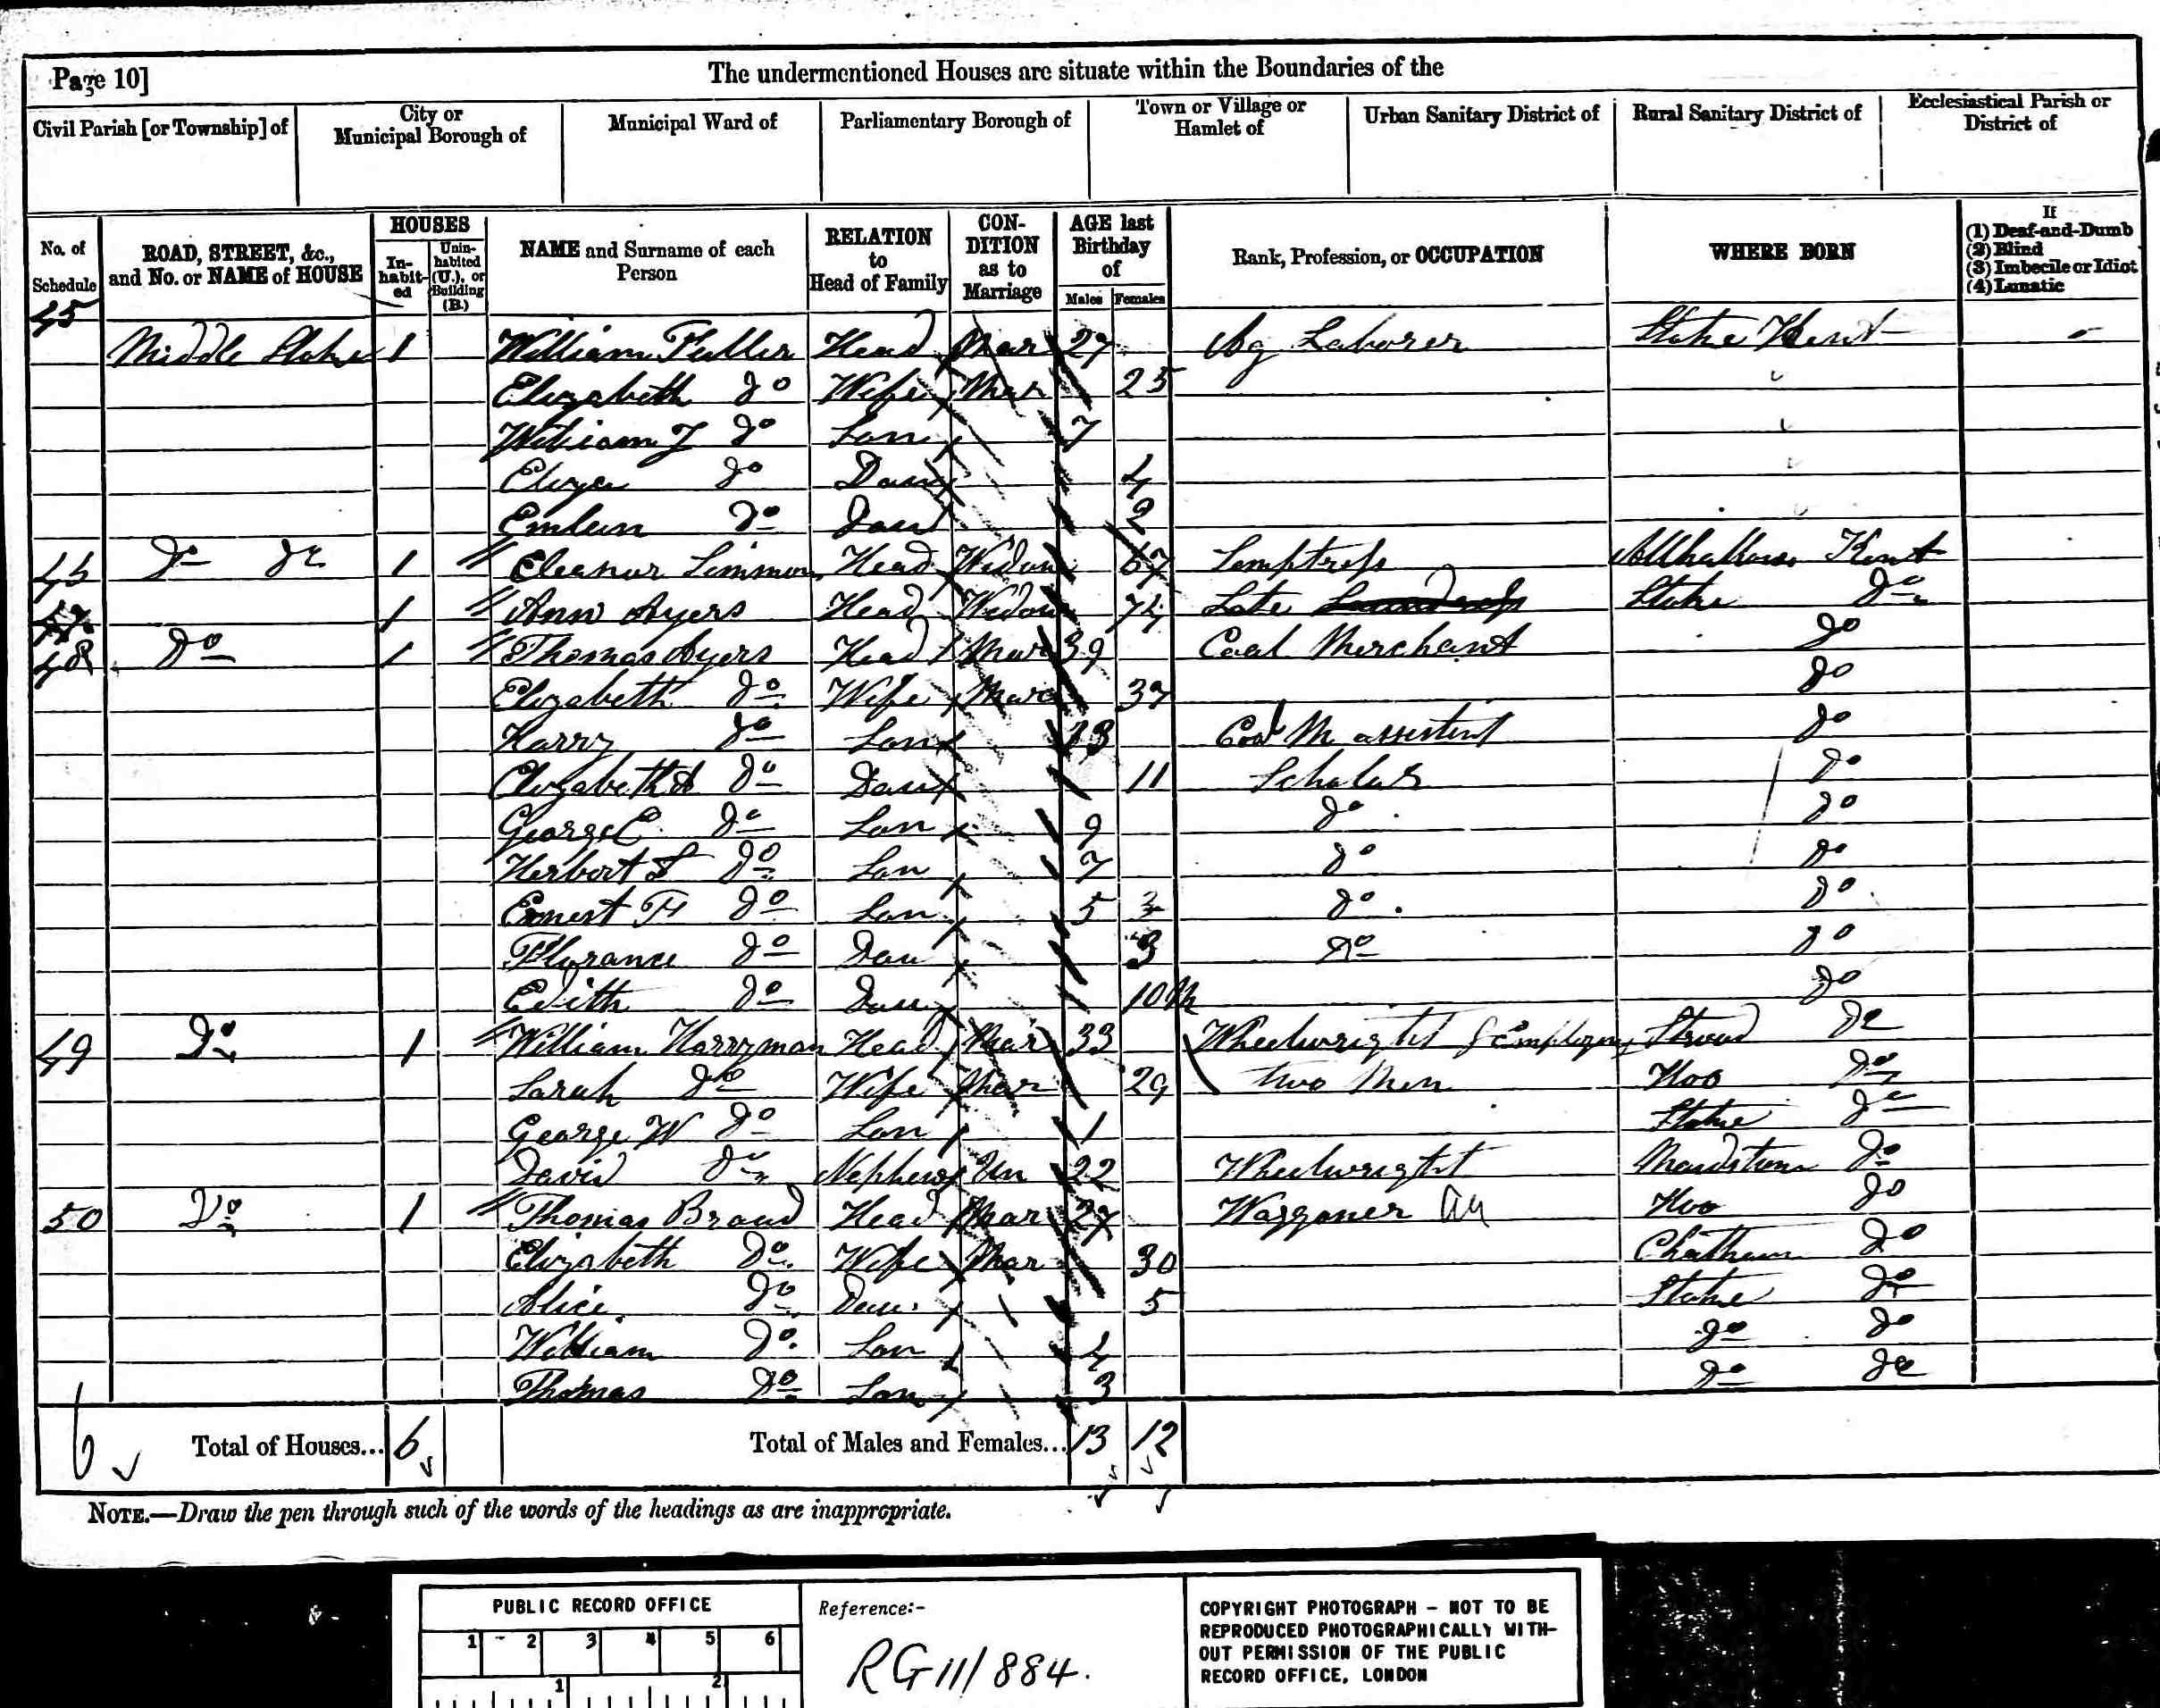 Page 10]
The undermentioned Houses are situate within the Boundaries of the
Civil Parish [or Township] of
City or Municipal Borough of
Municipal Ward of
Parliamentary Borough of
Town or Village or Hamlet of
Urban Sanitary District of
Rural Sanitary District of
Ecclesiastical Parish or District of
No. of Schedule
ROAD, STREET, &c., and No. or NAME of HOUSE
HOUSES
In-habit-ed
Unin-habited (U.), or Building (B.)
NAME and Surname of each Person
RELATION to Head of Family
CON-DITION as to Marriage
AGE last Birthday of
Males Females
Rank, Profession, or OCCUPATION
WHERE BORN
If
(1) Deaf-and-Dumb
(2) Blind
(3) Imbecile or Idiot
(4) Lunatic
45 Middle Stoke 1 William Fuller Head Mar 27 Ag Laborer Stoke Kent
Elizabeth Do Wife Mar 25
William J Do Son 7
Eliza Do Daur 4
Do Daur 2
Do Do 1 Eleanor Simmons Head Widow 67 Semptress Allhallows Kent
1 Ann Ayers Head Widow Late Laundress Stoke Do
48 Do 1 Thomas Ayers Head Mar 39 Coal Merchant Do
Elizabeth Do Wife Mar 37 Do
Harry Do Son 13 Coal M assistent Do
Elizabeth A Do Daur 11 Scholar Do
George E Do Son 9 Do Do
Herbert S Do Son 7 Do Do
Ernest F Do Son 5 Do Do
Florance Do Dau 3 Do Do
Edith Do Dau 10 m Do
49 Do 1 William Harryman Head Mar 33 Wheelwright Employing Strood Do
Sarah Do Wife Mar 29 two Men Hoo Do
George W Do Son 1 Stoke Do
David Do Nephew Un 22 Wheelwright Maidstone Do
50 Do 1 Thomas Broad Head Mar 27 Waggoner Ag Hoo Do
Elizabeth Do Wife Mar 30 Chatham Do
Alice Do Dau. 5 Stoke Do
William Do Son 4 Do Do
Thomas Do Son 3 Do Do
6 Total of Houses... 6 Total of Males and Females... 13 12
NOTE.—Draw the pen through such of the words of the headings as are inappropriate.
PUBLIC RECORD OFFICE
1 2 3 4 5 6
1 2
Reference:-
RG 11/884.
COPYRIGHT PHOTOGRAPH - NOT TO BE
REPRODUCED PHOTOGRAPHICALLY WITH-
OUT PERMISSION OF THE PUBLIC
RECORD OFFICE, LONDON